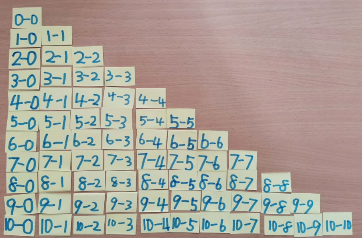 0-0
1-0 1-1
2-0 2-1 2-2
3-0 3-1 3-2 3-3
4-0 4-1 4-2 4-3 4-4
5-0 5-1 5-2 5-3 5-4 5-5
6-0 6-1 6-2 6-3 6-4 6-5 6-6
7-0 7-1 7-2 7-3 7-4 7-5 7-6 7-7
8-0 8-1 8-2 8-3 8-4 8-5 8-6 8-7 8-8
9-0 9-1 9-2 9-3 9-4 9-5 9-6 9-7 9-8 9-9
10-0 10-1 10-2 10-3 10-4 10-5 10-6 10-7 10-8 10-9 10-10